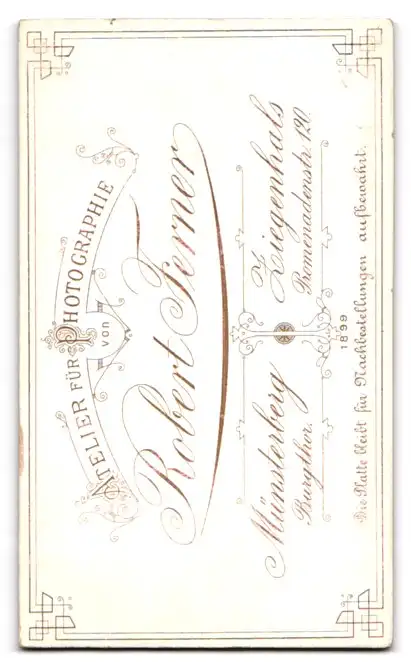 ATELIER FÜR PHOTOGRAPHIE
von
Robert Ferner
Münsterberg
Burgthor.
Ziegenhals
Promenadenstr. 120.
1899
Die Platte bleibt für Nachbestellungen aufbewahrt.